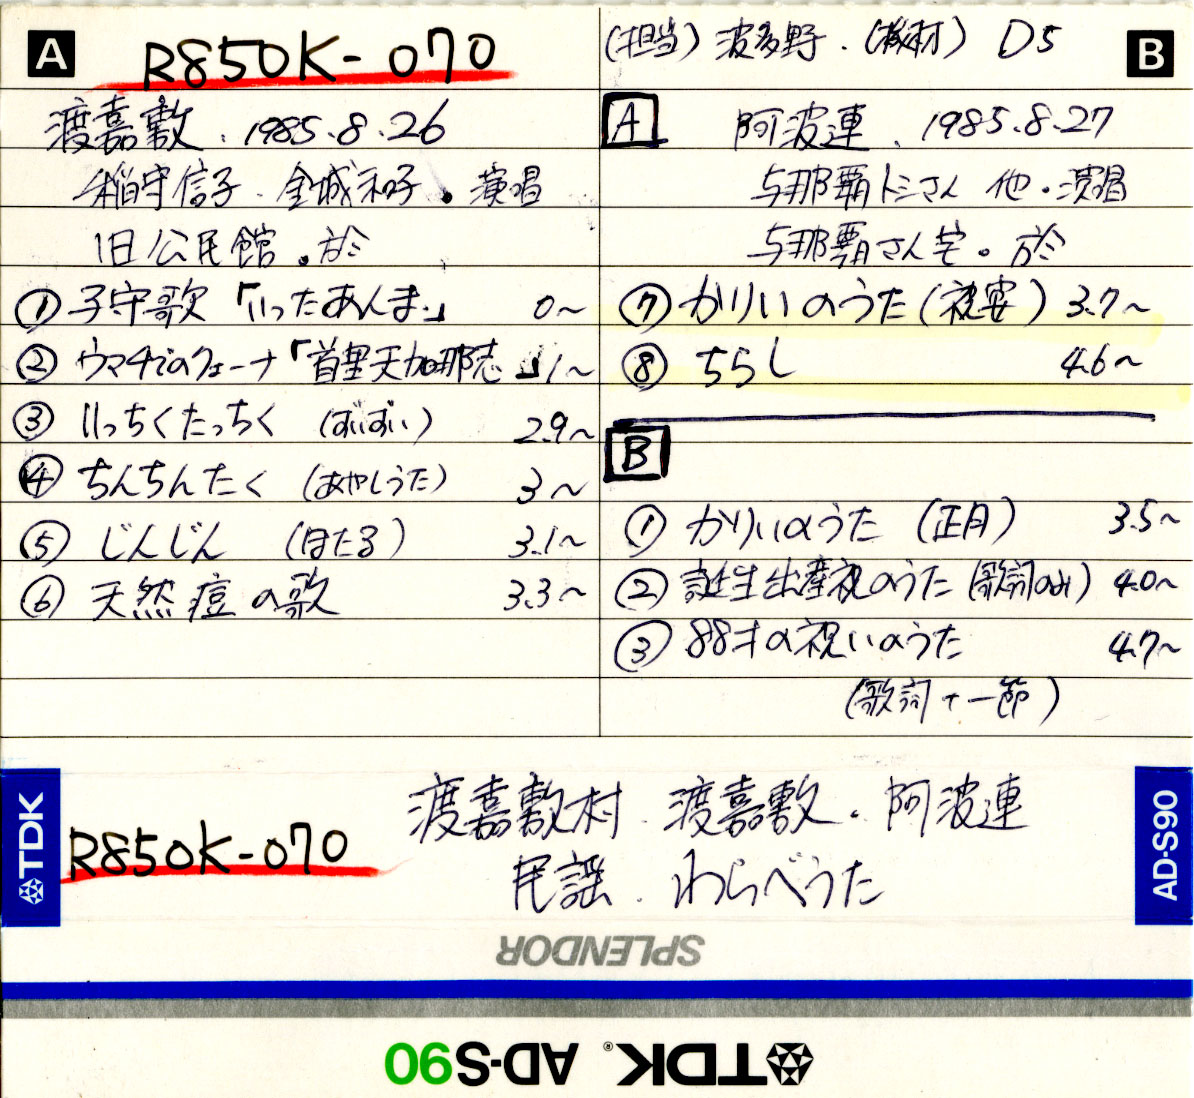 A
R850K-070
渡嘉敷．1985.8.26
稲守信子．金城和子．演唱
旧公民館．於
① 子守歌「いったあんま」 0～
② ウマチーのウェーナ「首里天加那志」 1～
③ いっちくたっちく（ずいずい） 2.9～
④ ちんちんたく（あやしうた） 3～
⑤ じんじん（ほたる） 3.1～
⑥ 天然痘の歌 3.3～
（担当）波多野．（機材）D5
B
A 阿波連．1985.8.27
与那覇トミさん 他．演唱
与那覇さん宅．於
⑦ かりいのうた（祝宴）3.7～
⑧ ちらし 4.6～
B
① かりいのうた（正月） 3.5～
② 誕生出産祝のうた（歌詞のみ） 4.0～
③ 88才の祝いのうた 4.7～
（歌詞＋一節）
TDK
R850K-070
渡嘉敷村．渡嘉敷．阿波連
民謡．わらべうた
AD-S90
SPLENDOR
TDK® AD-S90